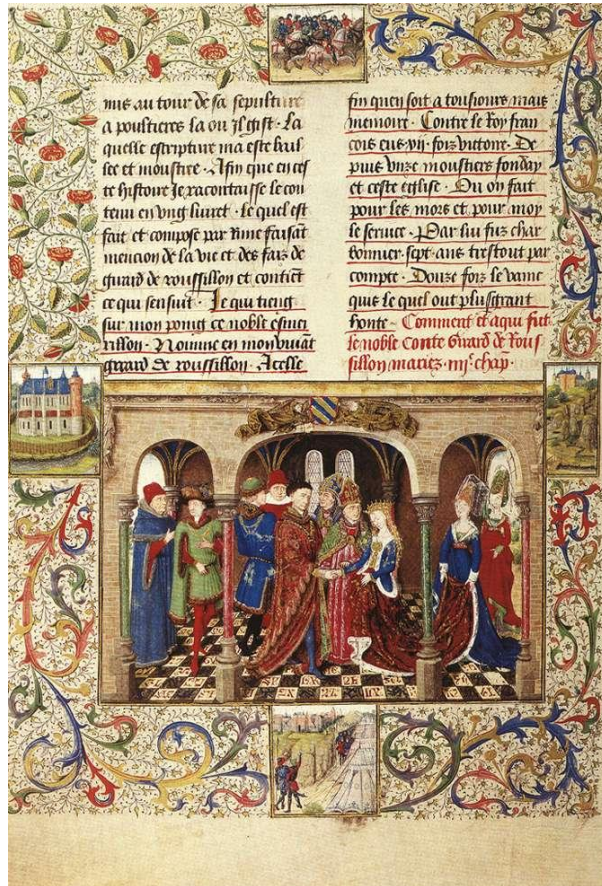 mis au tour de sa sepulture
a poultieres la ou Il gist · La
quelle escripture ma este bail
lee et monstree · Afin que en ces
te histoire Je racontaisse le con
tenu en ung liuret · le quel est
fait et compose par Rime faisāt
mencion de la vie et des faiz de
guard de roussillon et contiēt
ce qui sensuit · Je qui tieng
sur mon poing ce noble esmeri
rillon · Nomme en mon viuāt
gerard de roussillon · Acelle
fin quen soit a tousiours mais
memoire · Contre le Roy fran
cois eus vij fois victoire · De
puis vnze moustiers fonday
et ceste eglise · Ou on fait
pour les mors et pour moy
le seruice · Par lui fuz char
bonnier · sept · ans trestout par
compte · Douze fois le vainc
quis le quel out plus grant
honte · Comment et a qui fut
le noble conte Guard de Rous
sillon mariez · iiij.e chap̄ ·